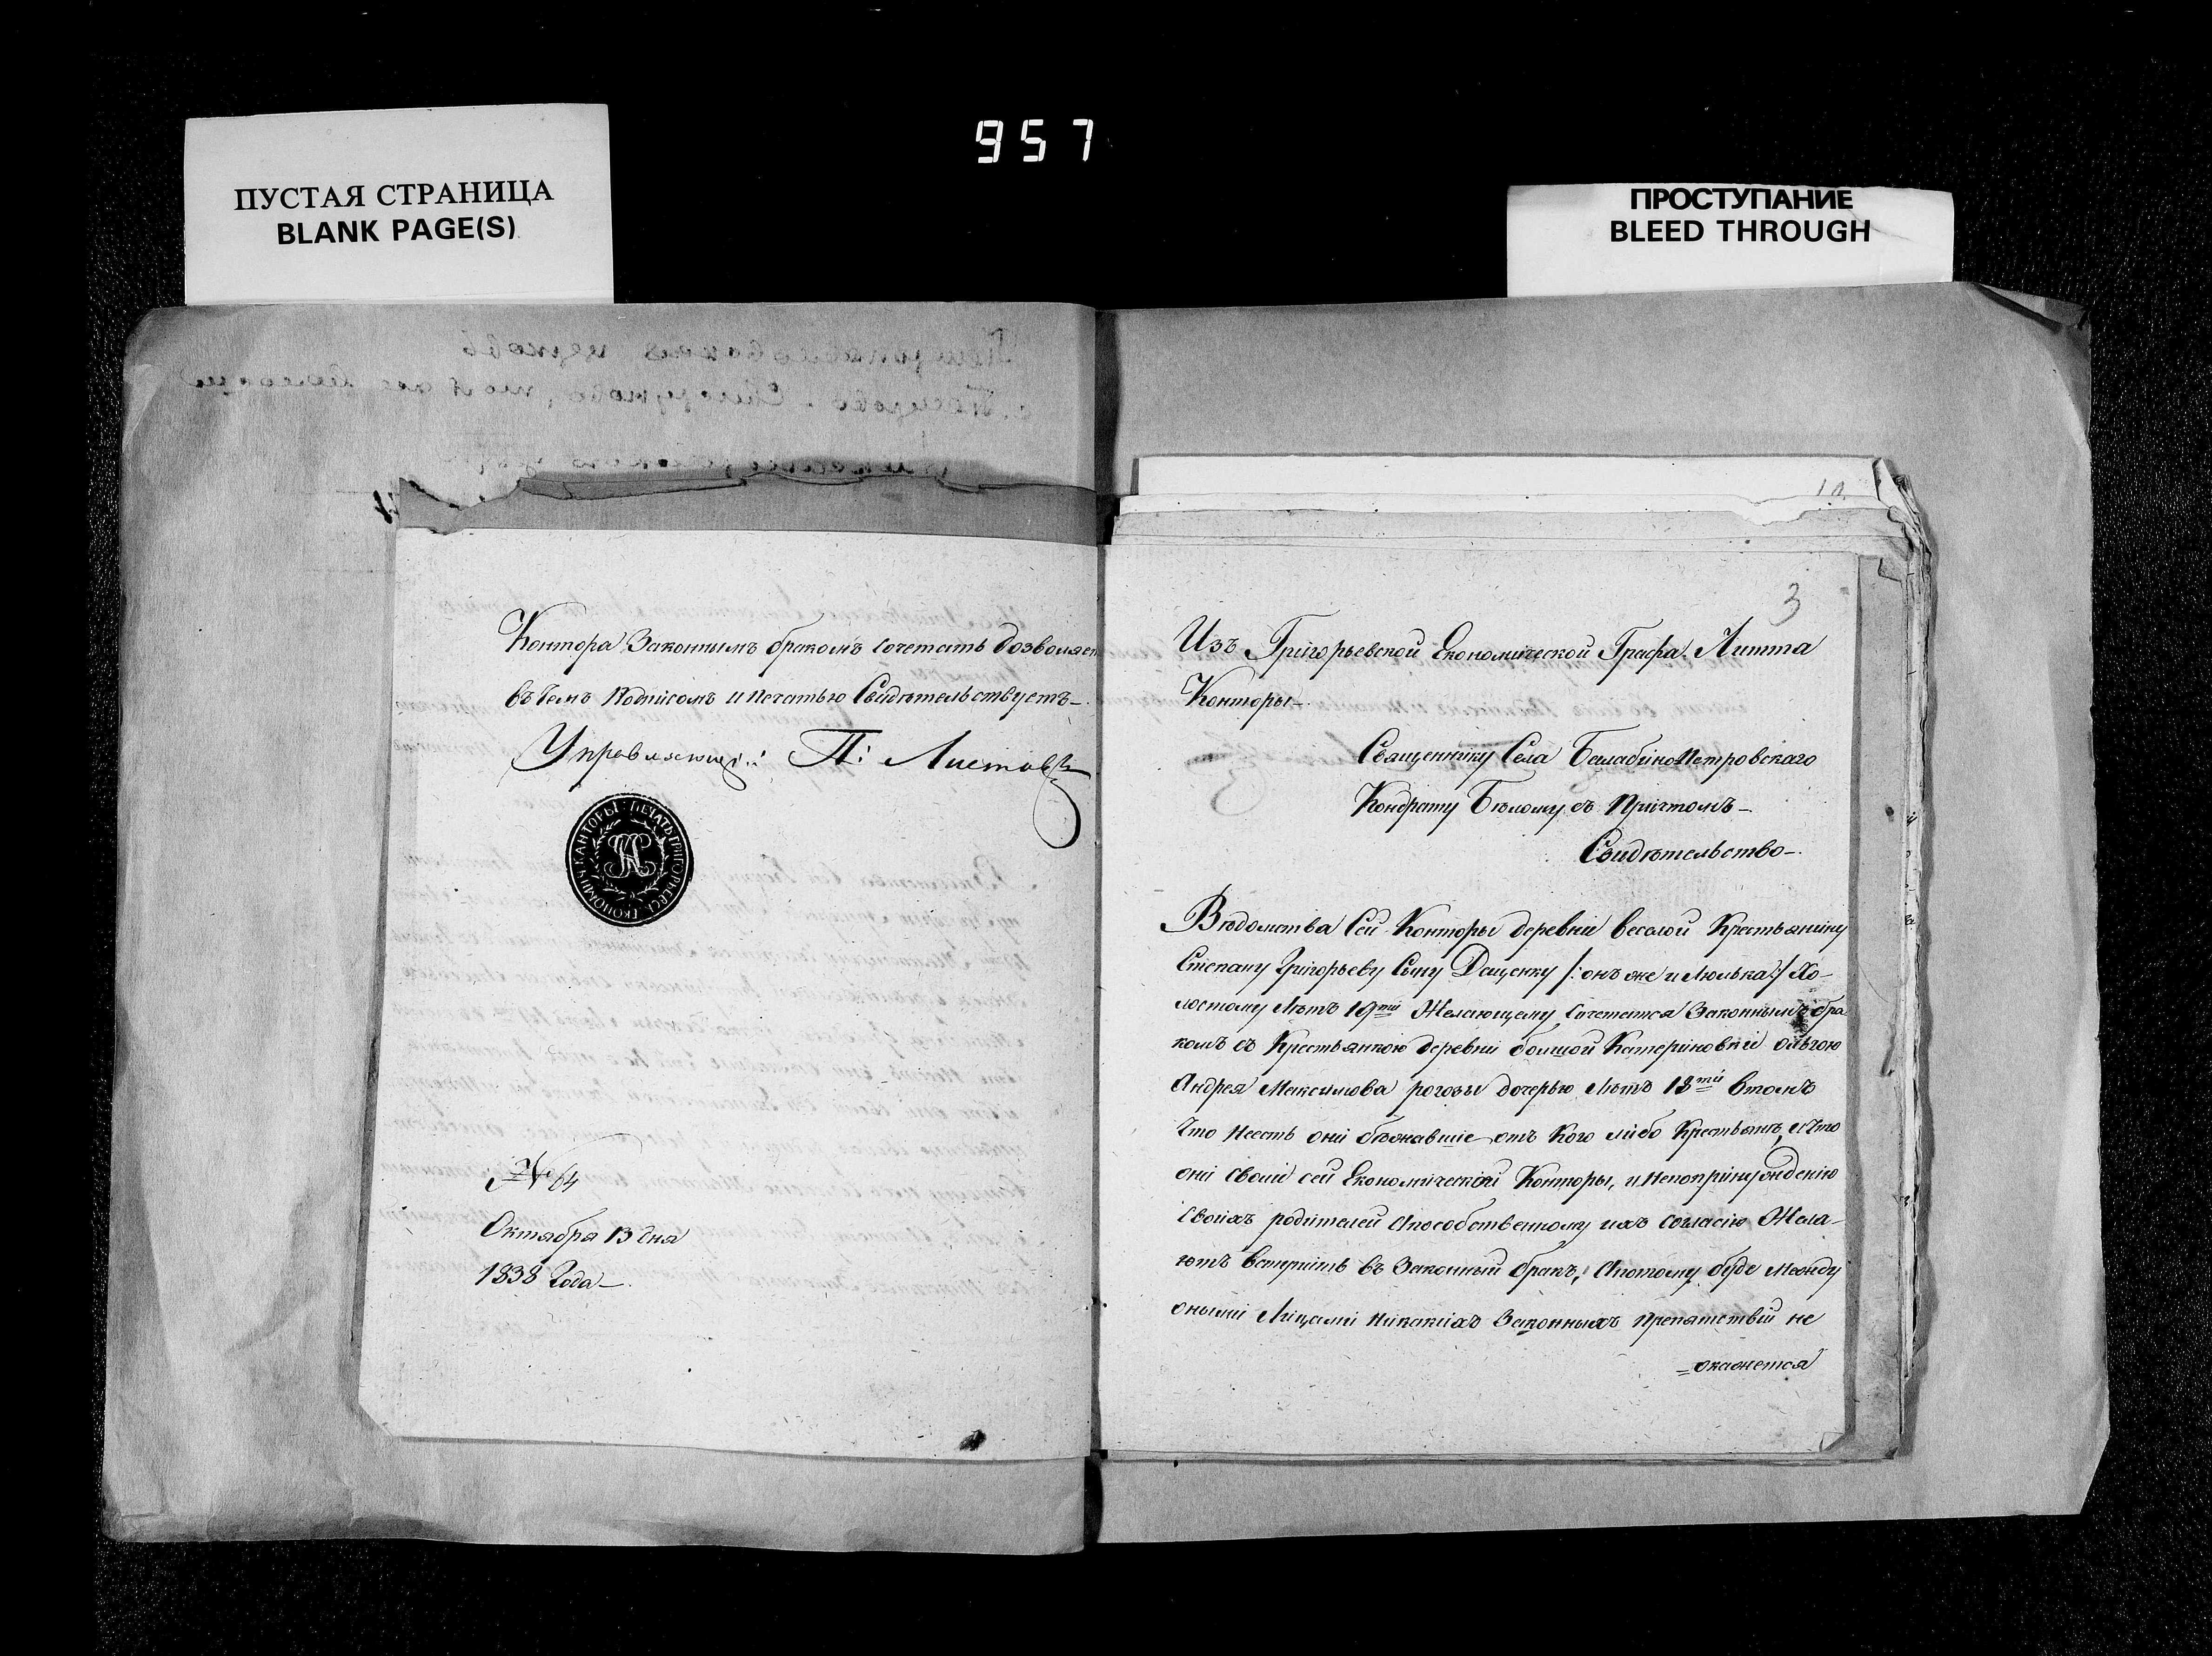 957
ПУСТАЯ СТРАНИЦА
BLANK PAGE(S)
ПРОСТУПАНИЕ
BLEED THROUGH
Контора Законнымъ бракомъ сочетать дозволяет
въ чемъ Подписомъ и печатью Свидѣтельствуетъ
Управляющій: П: Листовъ
ПЕЧАТЬ ГРИГОРЬЕВСК: ЕКОНОМИЧ: КАНТОРЫ
№ 64
Октября 13 дня
1838 года
10
3
Изъ Григорьевской Економической Графа Литта
Конторы
Священнику Села БалабиноПетровскаго
Кондрату Бѣлому съ Причтомъ
Свидѣтельство
Вѣдомства Сей Конторы деревни веселой Крестьянину
Степану Григорьеву Сыну Дащенку /: онъ же и Люлька :/ Хо-
лостому лѣтъ 19ти Желающему Сочетатся Законнымъ бра-
комъ съ Крестьянкою деревни болшой Катериновки Ольгою
Андрея Максимова рогозы дочерью лѣтъ 18ти втомъ
что несть они бѣжавшіе отъ Кого либо Крестьянъ, и что
они свои сей Економической Конторы, и непопринужденію
своихъ родителей апособственному ихъ согласію Жела-
ютъ вступить въ Законный бракъ, апотому буде между
оными лицами никакихъ Законныхъ препятствій не
окажется